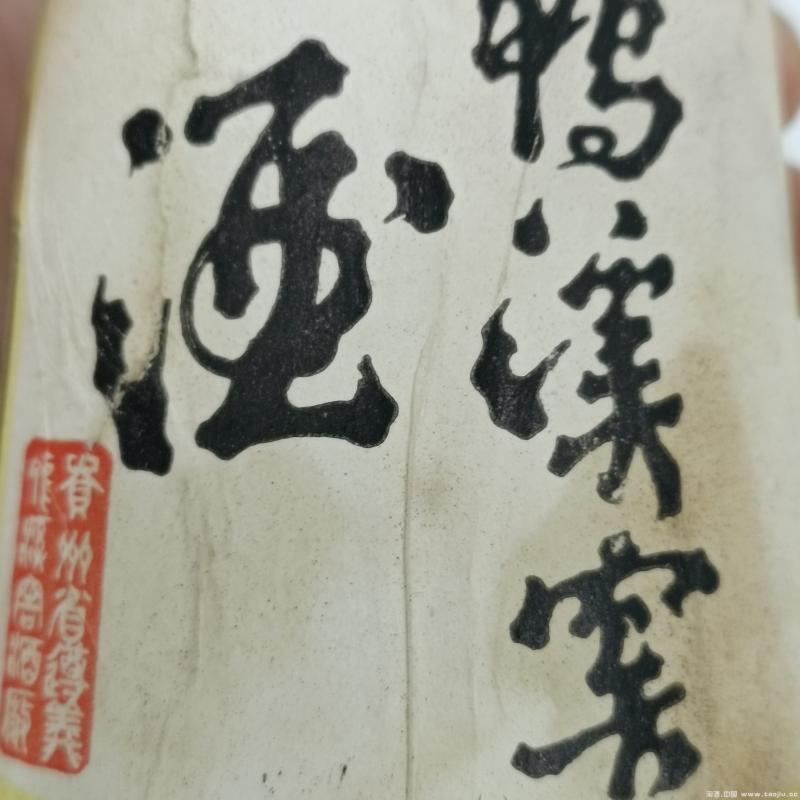 鸭溪窖
酒
贵州省遵义
鸭溪窖酒厂
淘酒.中国 www.taojiu.cc